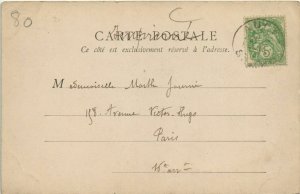 80
CARTE POSTALE
Ce côté est exclusivement réservé à l'adresse.
Mademoiselle Marthe Fournié
158. Avenue Victor-Hugo
Paris